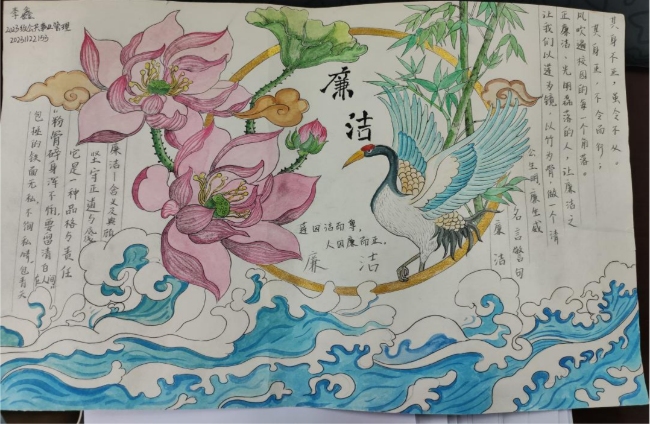 李鑫
2023级公共事业管理
20231122153
廉洁
其身不正，虽令不从。
其身正，不令而行；
风吹遍校园的每一个角落。
正廉洁、光明磊落的人，让廉洁之
让我们以莲为镜，以竹为骨，做一个清
公生明，廉生威
名言警句
廉洁
莲因洁而尊，
人因廉而正。
廉洁
廉洁：含义及典故
坚守正道
它是一种品格与责任
粉骨碎身浑不怕，要留清白在人间
包拯的铁面无私，不徇私情，包青天